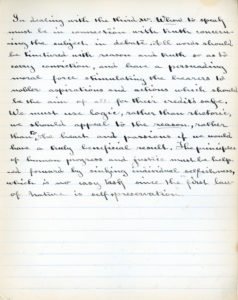 In dealing with the third sv. Whow to speak
must be in connection with truth concern-
ing the subject in debate. All words should
be tinctured with reason and truth so as to
carry conviction, and have a persuading
moral force stimulating the hearers to
nobler aspirations and actions which should
be the aim of all for their credits safe.
We must use logic, rather than rhetoric,
we should appeal to the reason, rather
than to the heart and passions if we would
have a truly beneficial result. The principles
of human progress and justice must be help-
ed forward by sinking individual selfishness,
which is no easy task since the first law
of Nature is self preservation.